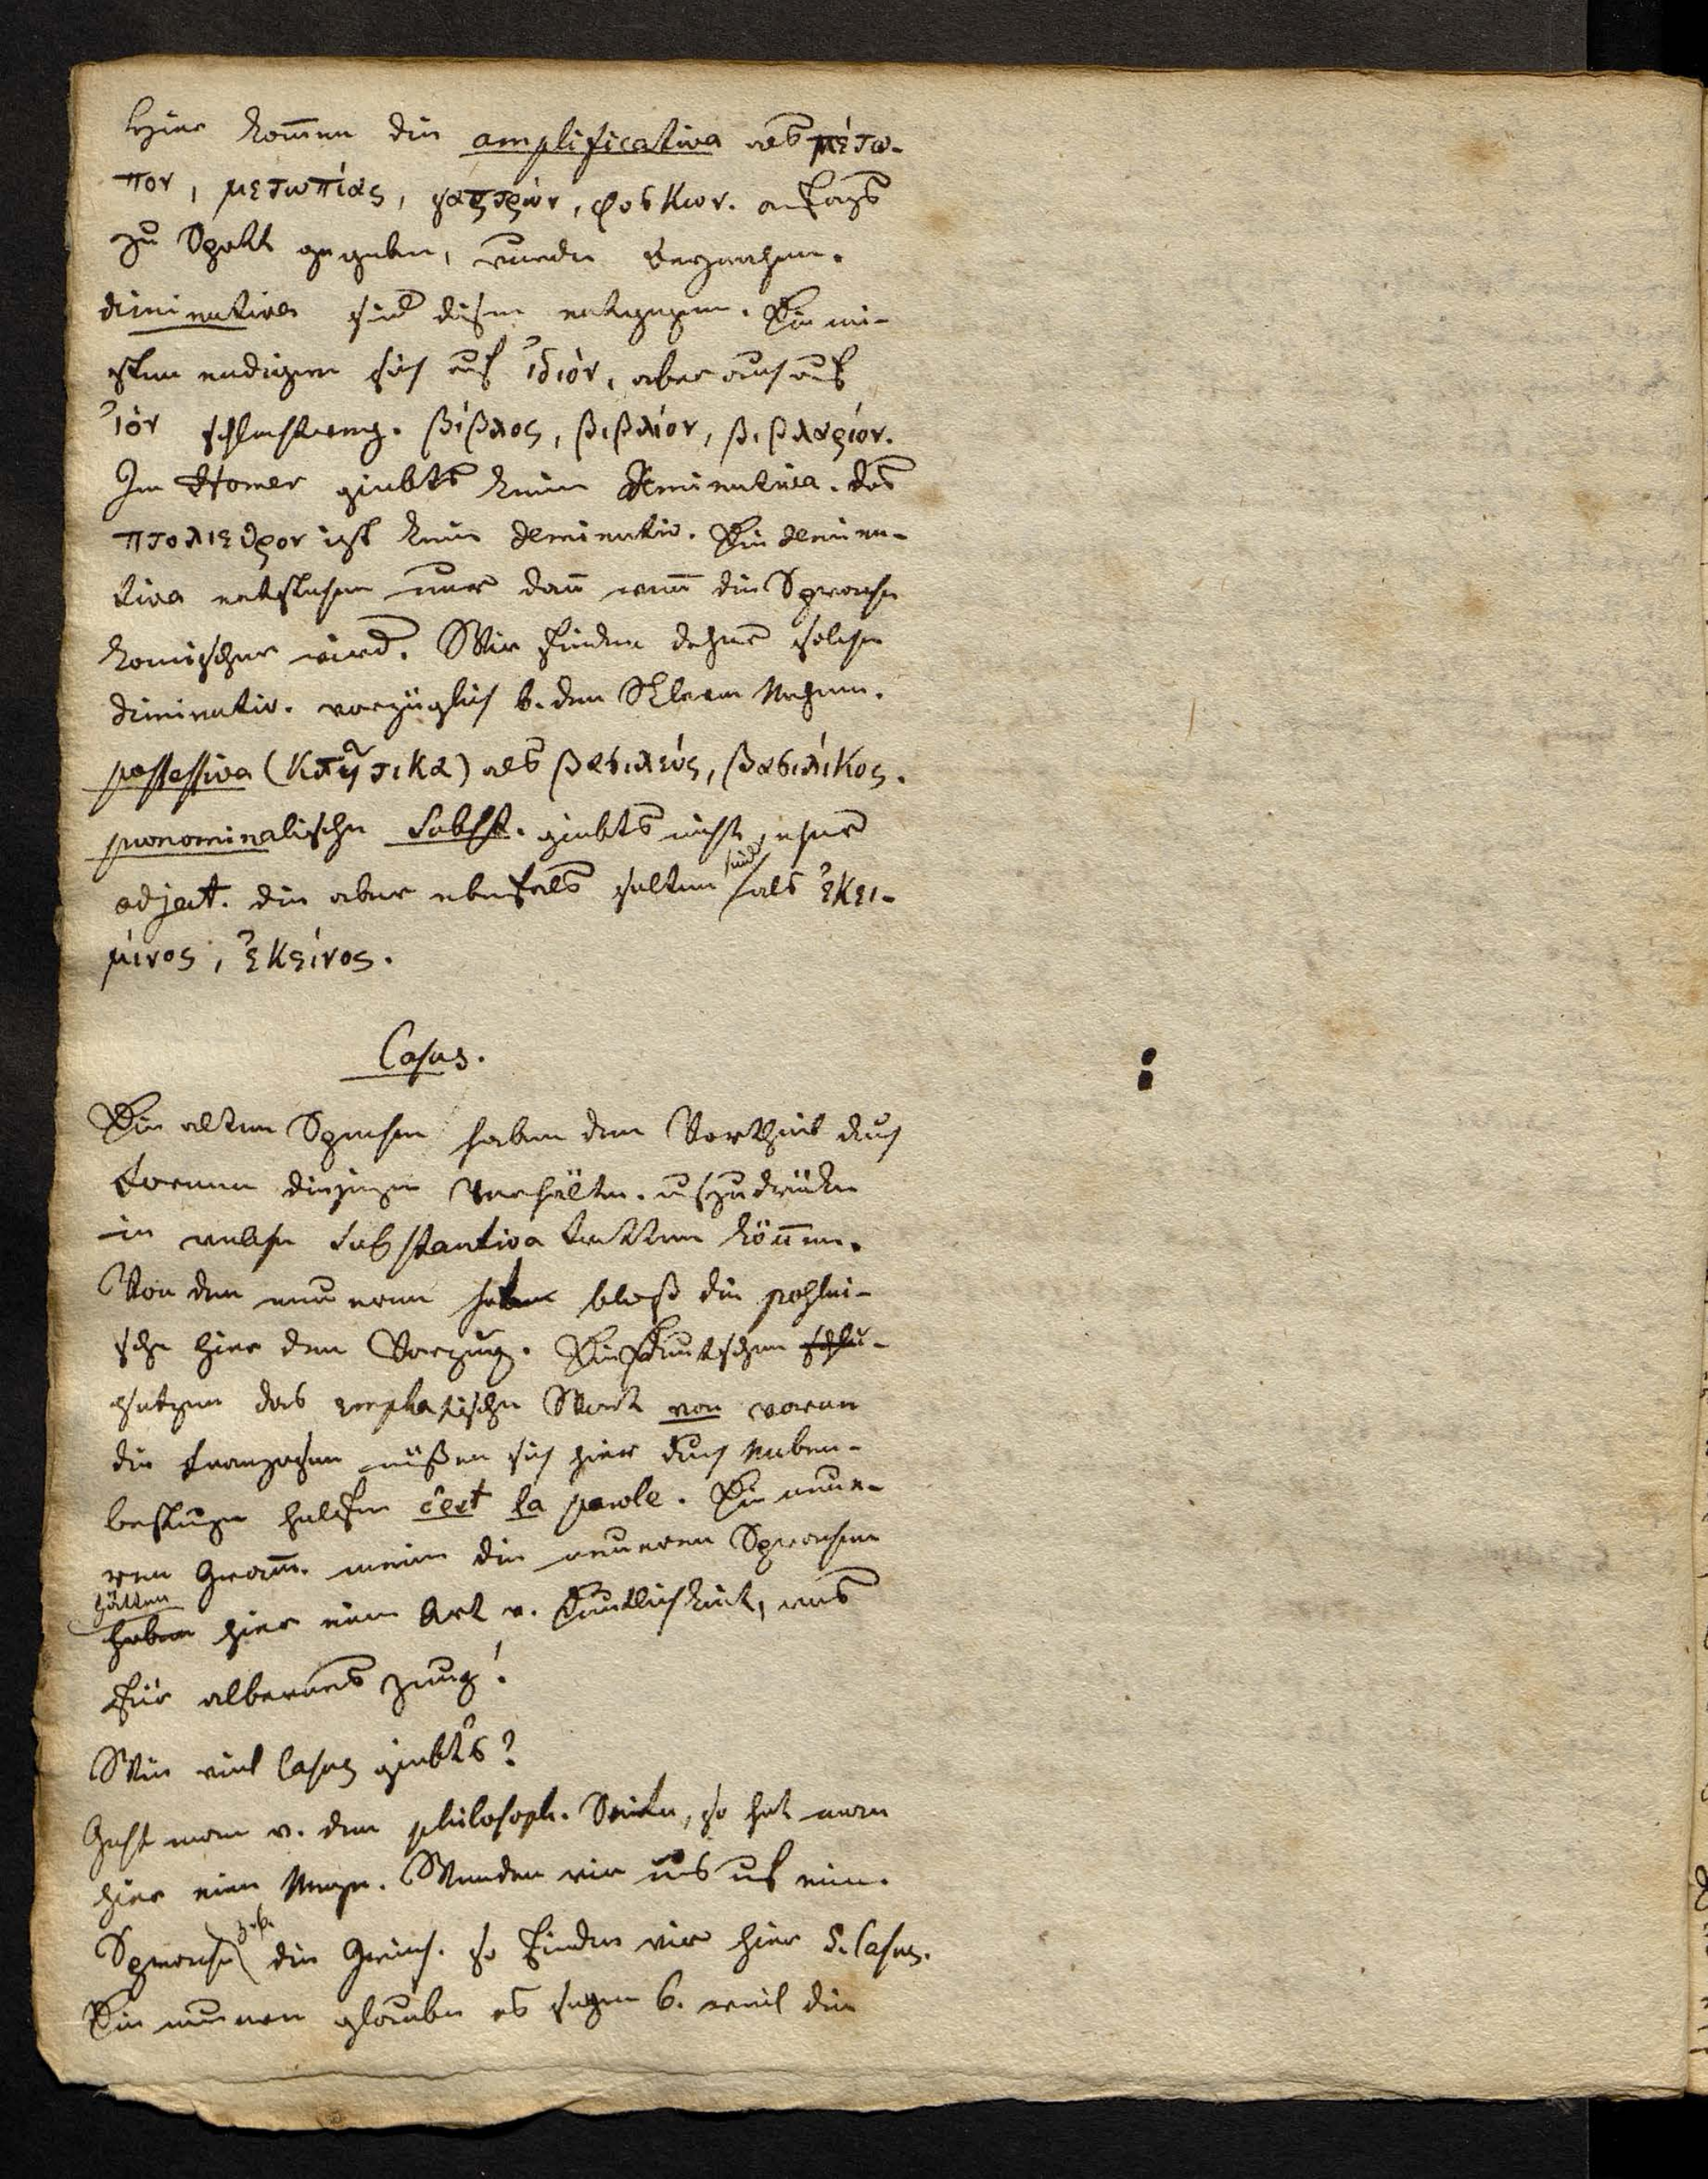 hier kom̄en die amplificativa als μέτω-
πον, μετωπίας, γαςτρών, φυσκων. anfangs
zu Spott gegeben, wurden
diminutiva sind diesen entgegen. Die mei-
sten endigen sich auf ἰδιόν, aber auch auf
ἰόν schlechtweg. βίβλος, βιβλίον, βιβλαρίον.
Im Homer giebts keine diminutiva. das
πτολιεθρον ist kein deminutiv. Die deminu-
tiva entstehen nur dan̄ wen̄ die Sprache
komischer wird. Wir finden daher solche
diminutiv. vorzüglich b. den
possessiva (Κτητικα) als βασιλεύς, βασιλίκος.
pronominalische Subst. giebts nicht, eher
adject. die aber ebenfals selten sind als ἐκει-
μίνος, ἐκείνος.
Casus.
Die alten Sprachen haben den Vortheil durch
Formen diejenigen Verhältn. auszudrücken
in welche Substantiva tretten kön̄en.
Von den neueren haben bloß die pohlni-
sche hier den Vorzug. Die Deutschen
setzen das emphatische Wort von voran
die Franzosen müßen sich hier durch Neben-
helfen c'est la parole. Die neue-
ren Gram̄. meinen die neueren Sprachen
hätten
haben hier eine Art v. Deutlichkeit, was
für albernes Zeug!
Wie viel Casus giebts?
Geht man v. den philosoph. Seite, so hat man
hier eine Menge. Wenden wir uns auf eine
Sprache z.B. die Griech. so finden wir hier 5. Casus.
Die neueren glauben es seyen 6. weil die